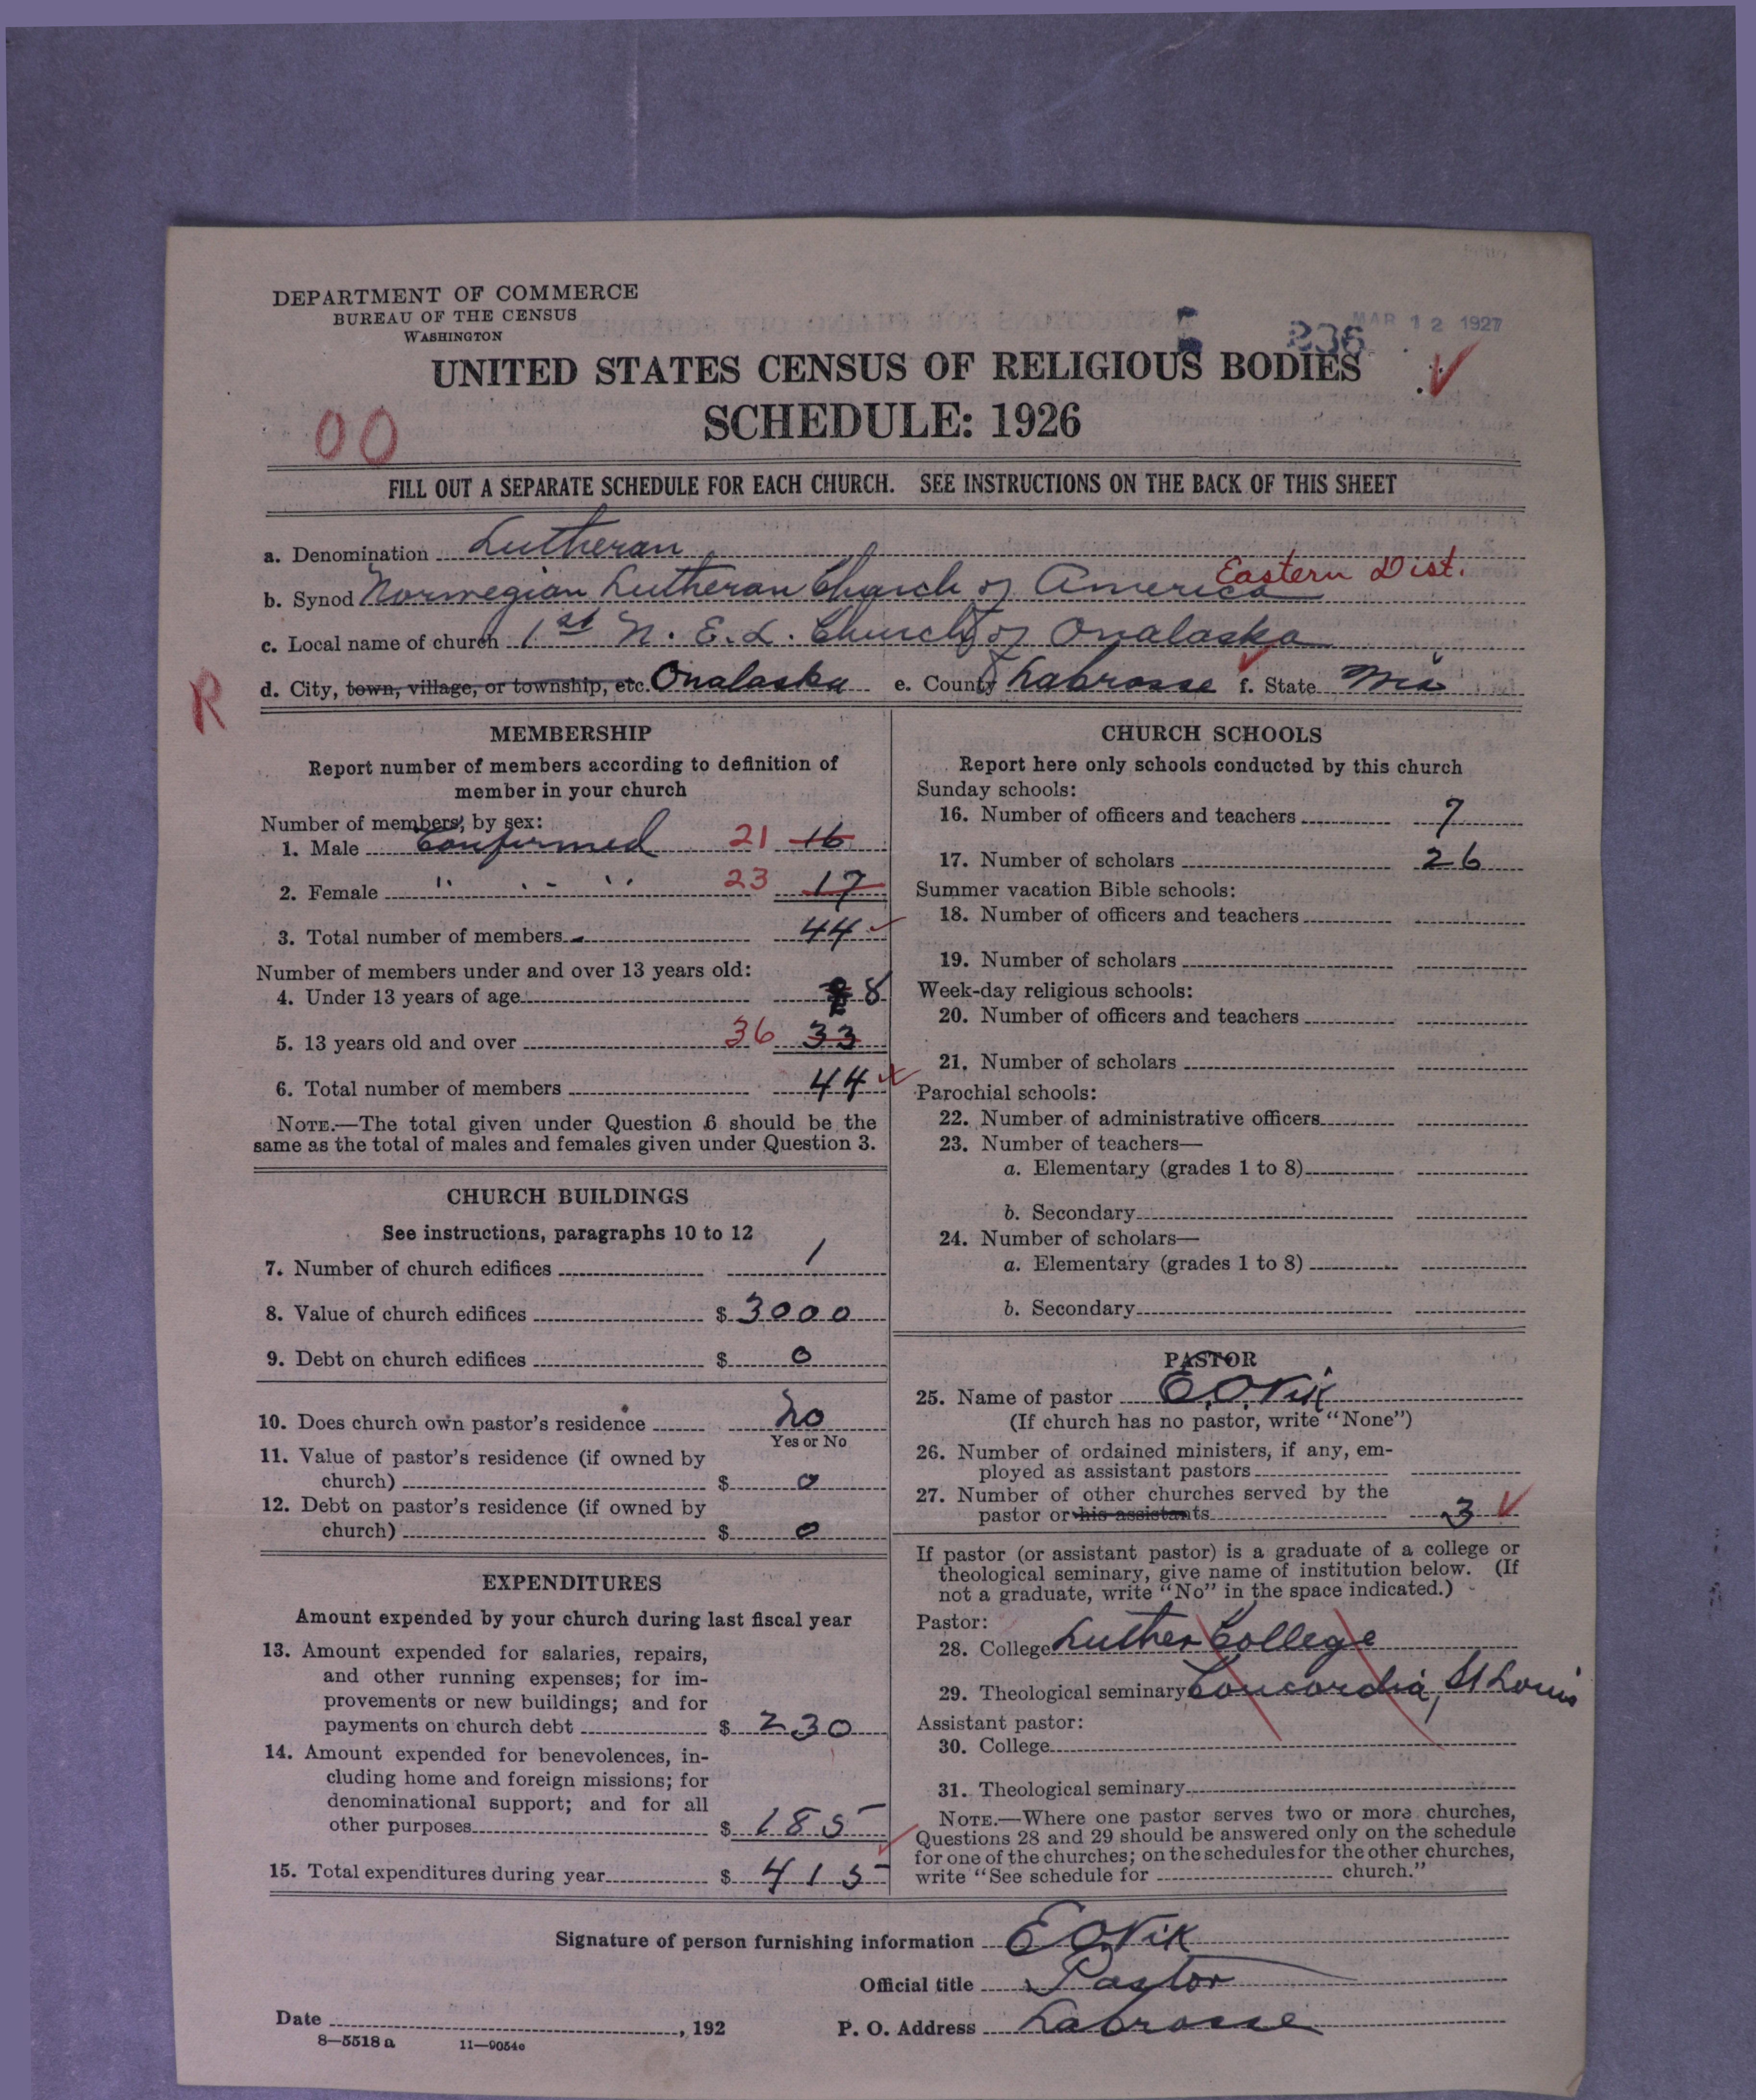 DEPARTMENT OF COMMERCE
BUREAU OF THE CENSUS
WASHINGTON
236 MAR 12 1927
UNITED STATES CENSUS OF RELIGIOUS BODIES
SCHEDULE: 1926
00
FILL OUT A SEPARATE SCHEDULE FOR EACH CHURCH. SEE INSTRUCTIONS ON THE BACK OF THIS SHEET
a. Denomination Lutheran
Eastern Dist.
b. Synod Norwegian Lutheran Church of America
c. Local name of church 1st N. E. L. Church of Onalaska
R
d. City, town, village, or township, etc. Onalaska e. County LaCrosse f. State Wis
MEMBERSHIP
Report number of members according to definition of
member in your church
Number of members, by sex:
1. Male Confirmed 21 16
2. Female " " " 23 17
3. Total number of members 44
Number of members under and over 13 years old:
4. Under 13 years of age 8
5. 13 years old and over 36 33
6. Total number of members 44
NOTE.—The total given under Question 6 should be the
same as the total of males and females given under Question 3.
CHURCH BUILDINGS
See instructions, paragraphs 10 to 12
7. Number of church edifices 1
8. Value of church edifices $ 3000
9. Debt on church edifices $ 0
10. Does church own pastor's residence No
Yes or No
11. Value of pastor's residence (if owned by
church) $ 0
12. Debt on pastor's residence (if owned by
church) $ 0
EXPENDITURES
Amount expended by your church during last fiscal year
13. Amount expended for salaries, repairs,
and other running expenses; for im-
provements or new buildings; and for
payments on church debt $ 230
14. Amount expended for benevolences, in-
cluding home and foreign missions; for
denominational support; and for all
other purposes $ 185
15. Total expenditures during year $ 415
CHURCH SCHOOLS
Report here only schools conducted by this church
Sunday schools:
16. Number of officers and teachers 7
17. Number of scholars 26
Summer vacation Bible schools:
18. Number of officers and teachers
19. Number of scholars
Week-day religious schools:
20. Number of officers and teachers
21. Number of scholars
Parochial schools:
22. Number of administrative officers
23. Number of teachers—
a. Elementary (grades 1 to 8)
b. Secondary
24. Number of scholars—
a. Elementary (grades 1 to 8)
b. Secondary
PASTOR
25. Name of pastor E. O. Vik
(If church has no pastor, write "None")
26. Number of ordained ministers, if any, em-
ployed as assistant pastors
27. Number of other churches served by the
pastor or his assistants 3
If pastor (or assistant pastor) is a graduate of a college or
theological seminary, give name of institution below. (If
not a graduate, write "No" in the space indicated.)
Pastor:
28. College Luther College
29. Theological seminary Concordia, St Louis
Assistant pastor:
30. College
31. Theological seminary
NOTE.—Where one pastor serves two or more churches,
Questions 28 and 29 should be answered only on the schedule
for one of the churches; on the schedules for the other churches,
write "See schedule for church."
Signature of person furnishing information E O Vik
Official title Pastor
Date , 192 P. O. Address LaCrosse
8—5518 a 11—9054c